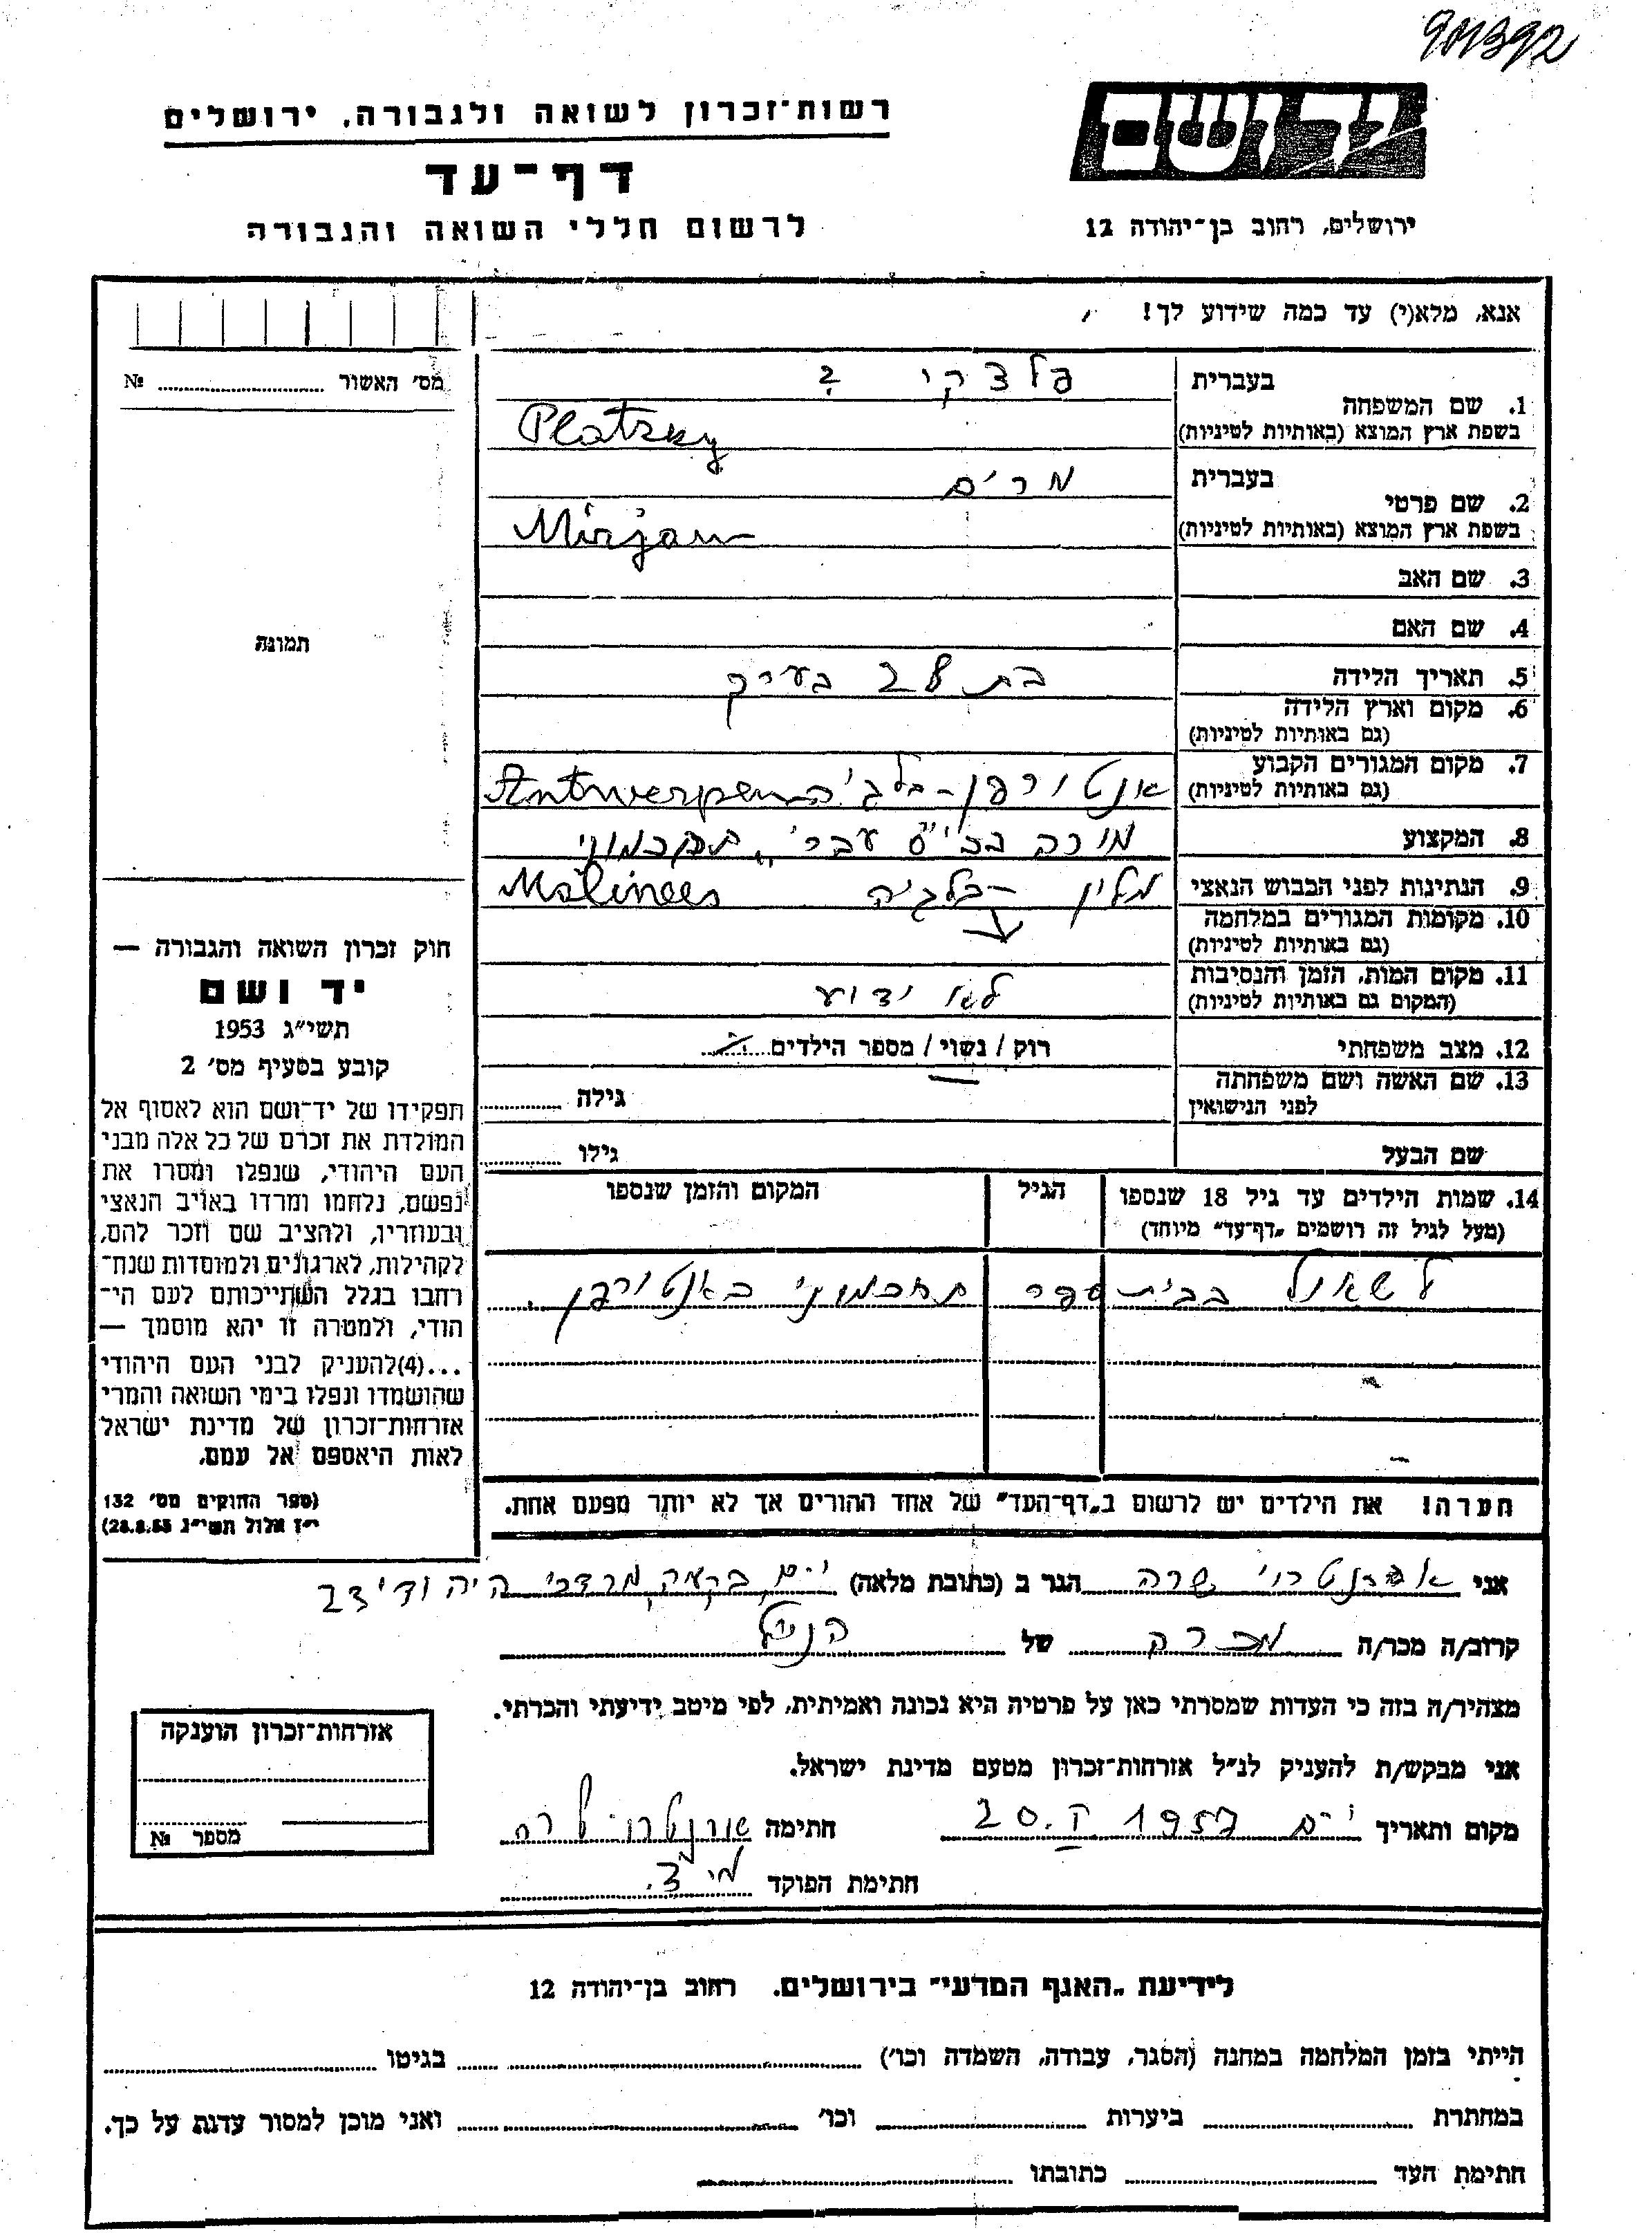 901392
ידושם
רשות־זכרון לשואה ולגבורה, ירושלים
דף־עד
לרשום חללי השואה והגבורה
ירושלים, רחוב בן־יהודה 12
אנא, מלא(י) עד כמה שידוע לך!
מס׳ האשור № 
תמונה
בעברית פלצקי ?
1. שם המשפחה
בשפת ארץ המוצא (באותיות לטיניות) Platzky
בעברית מרים
2. שם פרטי
בשפת ארץ המוצא (באותיות לטיניות) Mirjam
3. שם האב
4. שם האם
5. תאריך הלידה בת 28 בערך
6. מקום וארץ הלידה
(גם באותיות לטיניות)
7. מקום המגורים הקבוע
(גם באותיות לטיניות) אנטורפן - בלגיה Antwerpen
8. המקצוע מורה בבי"ס עברי "תחכמוני
9. הנתינות לפני הכבוש הנאצי מלין - בלגיה Malines
10. מקומות המגורים במלחמה
(גם באותיות לטיניות)
11. מקום המות, הזמן והנסיבות
(המקום גם באותיות לטיניות) לא ידוע
12. מצב משפחתי רוק / נשוי / מספר הילדים
13. שם האשה ושם משפחתה
לפני הנישואין גילה
שם הבעל גילו
14. שמות הילדים עד גיל 18 שנספו הגיל המקום והזמן שנספו
(מעל לגיל זה רושמים "דף־עד" מיוחד)
לשאול בבית ספר תחכמוני באנטורפן.
הערה! את הילדים יש לרשום ב"דף־העד" של אחד ההורים אך לא יותר מפעם אחת.
חוק זכרון השואה והגבורה —
יד ושם
תשי״ג 1953
קובע בסעיף מס׳ 2
תפקידו של יד־ושם הוא לאסוף אל
המולדת את זכרם של כל אלה מבני
העם היהודי, שנפלו ומסרו את
נפשם, נלחמו ומרדו באויב הנאצי
ובעוזריו, ולהציב שם וזכר להם,
לקהילות, לארגונים ולמוסדות שנח־
רחבו בגלל השתייכותם לעם הי־
הודי, ולמטרה זו יהא מוסמך —
...(4)להעניק לבני העם היהודי
שהושמדו ונפלו בימי השואה והמרי
אזרחות־זכרון של מדינת ישראל
לאות היאספם אל עמם.
(ספר החוקים מס׳ 132
י״ז אלול תשי״ג 28.8.53)
אני שרה הגר ב (כתובת מלאה) י-ם, מרדכי היהודי 23
קרוב/ה מכר/ה מכרה של הנ"ל
מצהיר/ה בזה כי העדות שמסרתי כאן על פרטיה היא נכונה ואמיתית, לפי מיטב ידיעתי והכרתי.
אני מבקש/ת להעניק לנ״ל אזרחות־זכרון מטעם מדינת ישראל.
מקום ותאריך י-ם 20.V 1957 חתימה
חתימת הפוקד
אזרחות־זכרון הוענקה
מספר №
לידיעת "האגף המדעי" בירושלים, רחוב בן־יהודה 12
הייתי בזמן המלחמה במחנה (הסגר, עבודה, השמדה וכו׳) בגיטו
במחתרת ביערות וכו׳ ואני מוכן למסור עדות על כך.
חתימת העד כתובתו